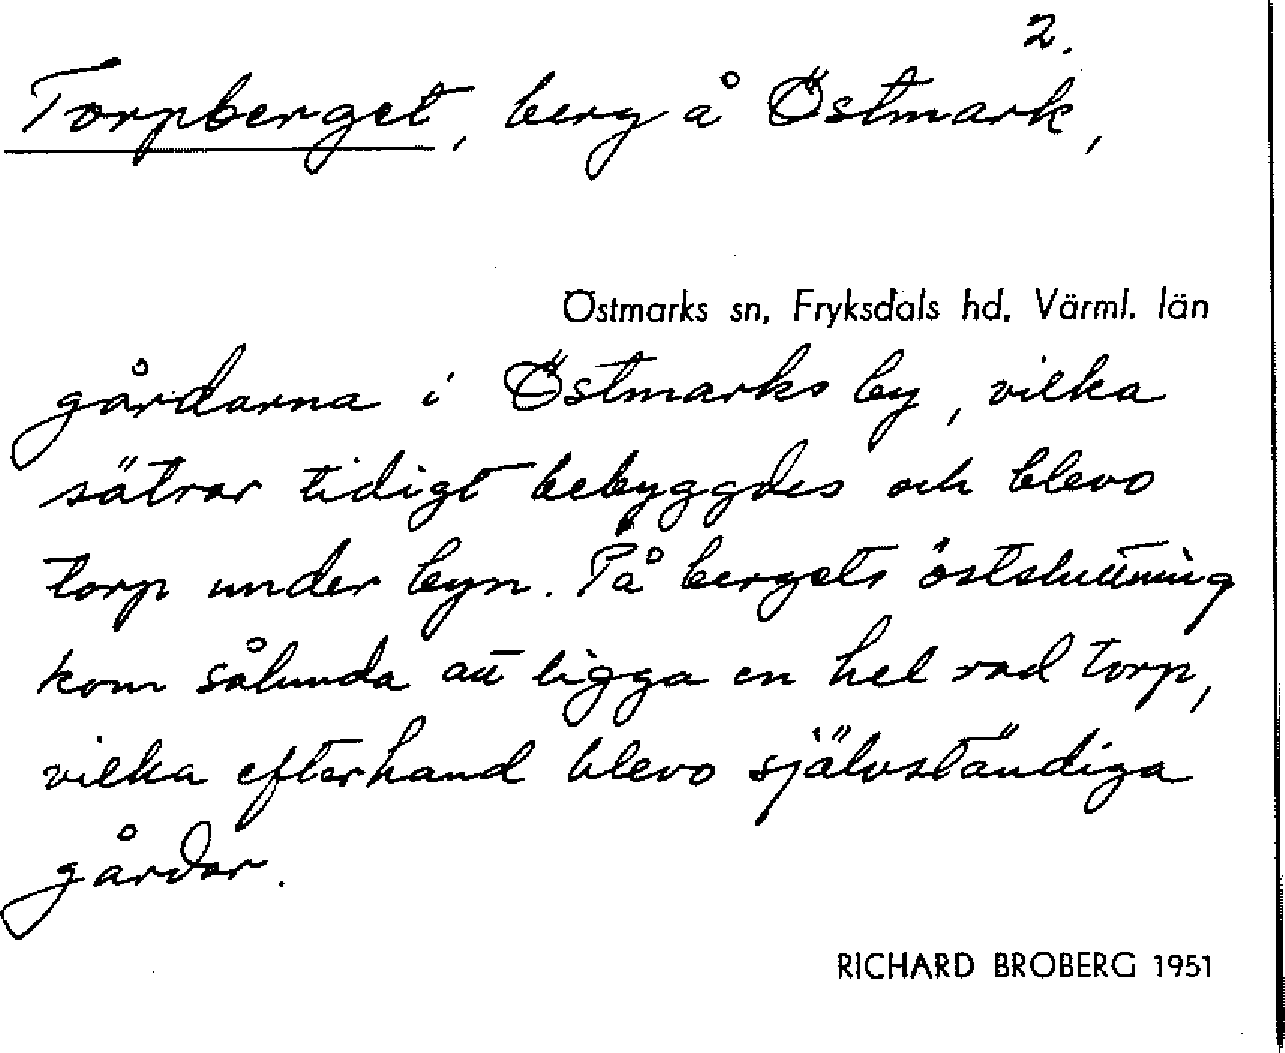 2.
Torpberget, berg å Östmark,
Östmarks sn, Fryksdals hd. Värml. län
gårdarna i Östmarks by, vilka
sätrar tidigt bebyggdes och blevo
torp under byn. På bergets östsluttning
kom sålunda att ligga en hel rad torp,
vilka efterhand blevo självständiga
gårdar.
RICHARD BROBERG 1951